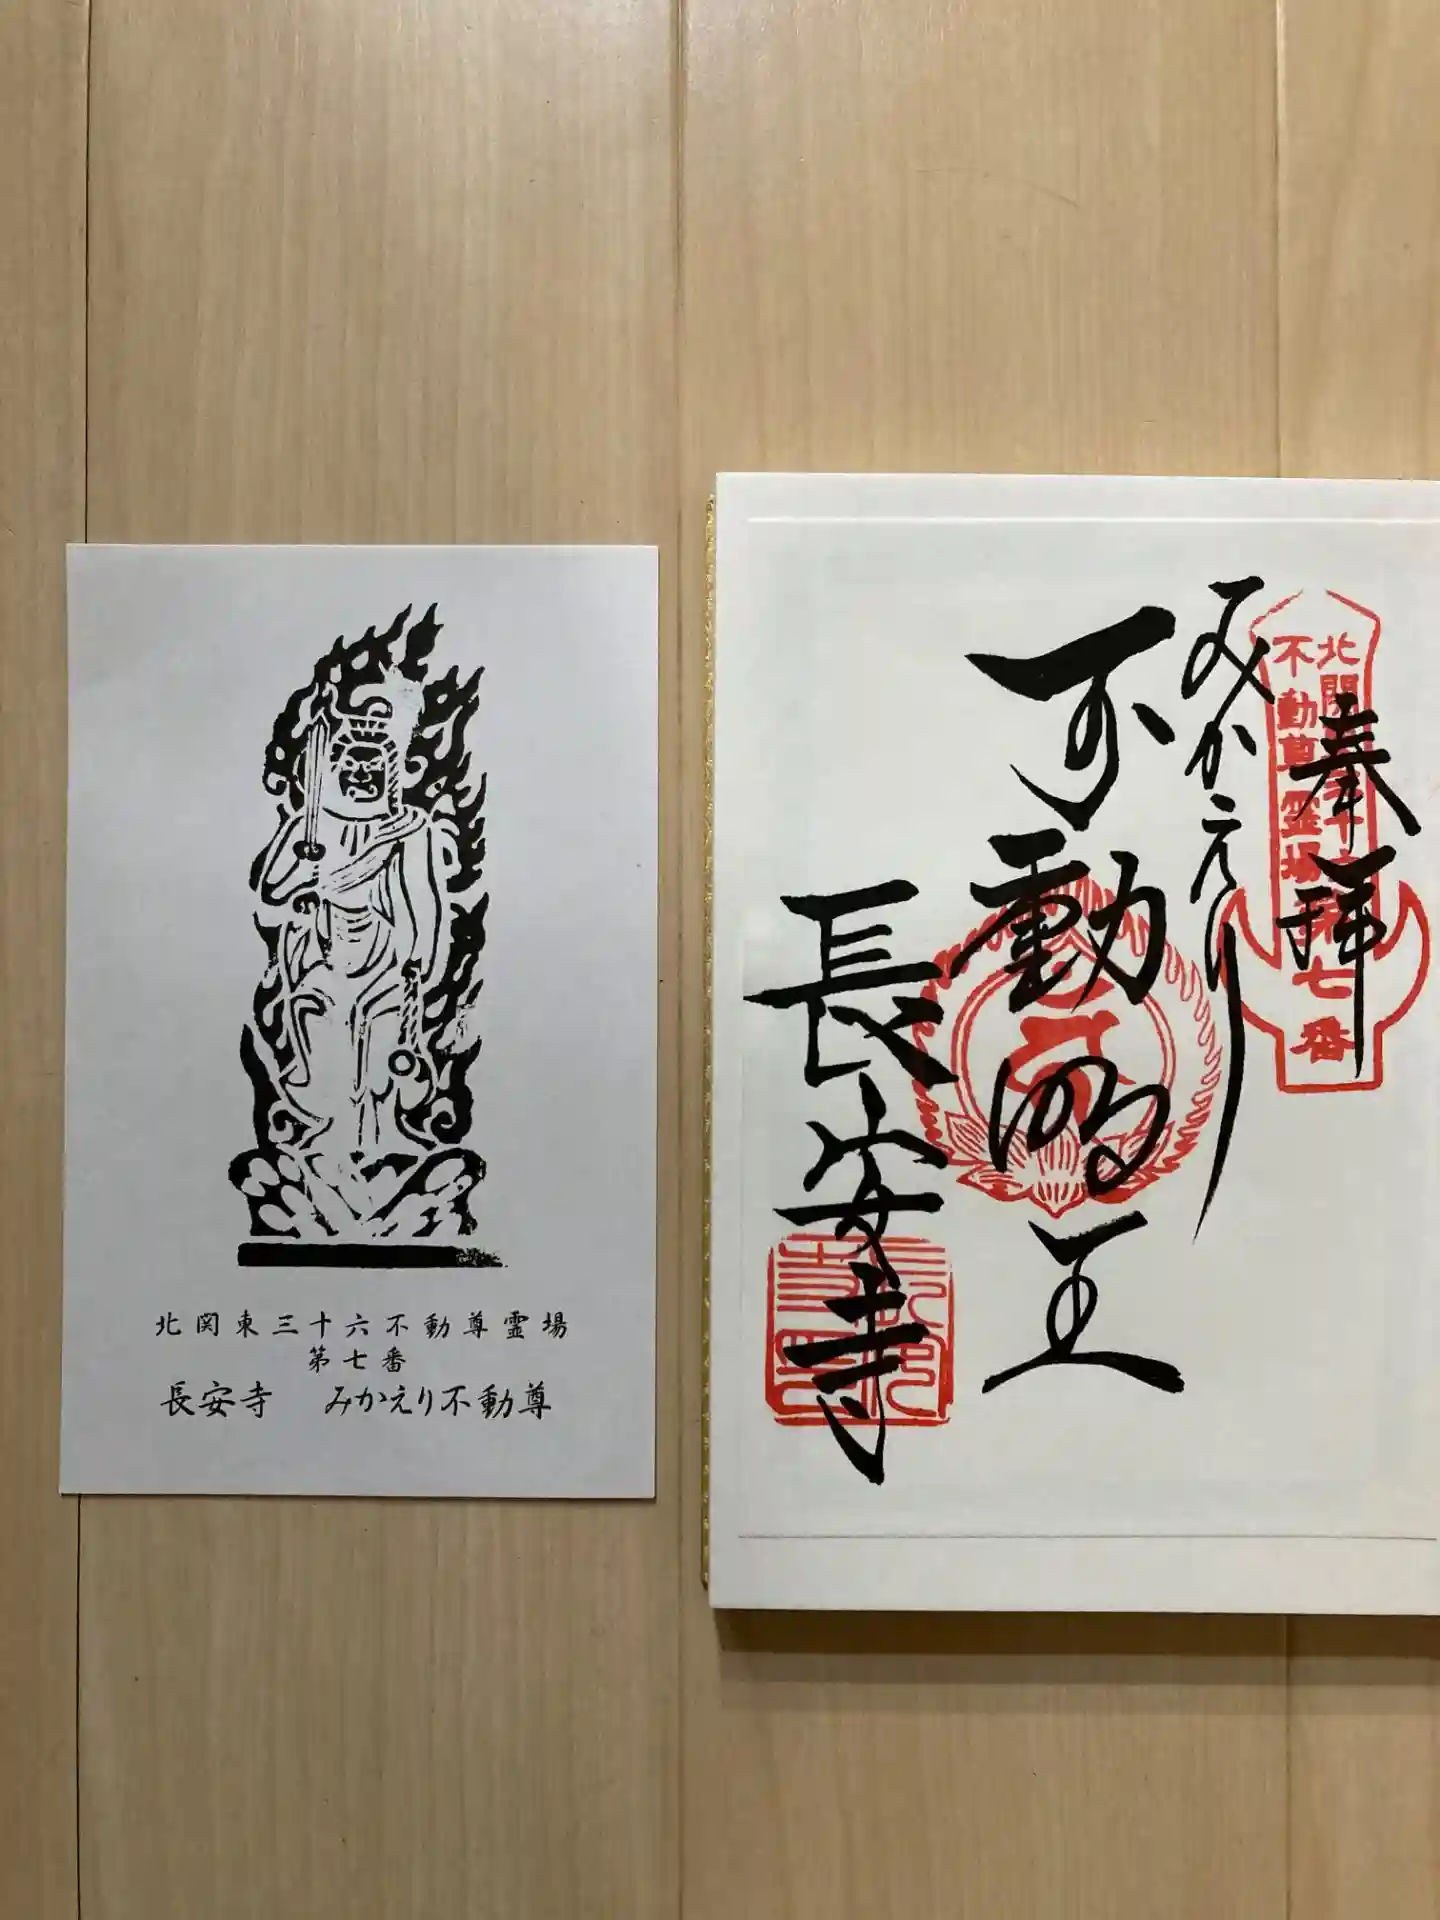 北関東三十六不動尊霊場
第七番
長安寺 みかえり不動尊
奉拝
北関東三十六
不動尊霊場
第七番
みかえり
不動明王
長安寺